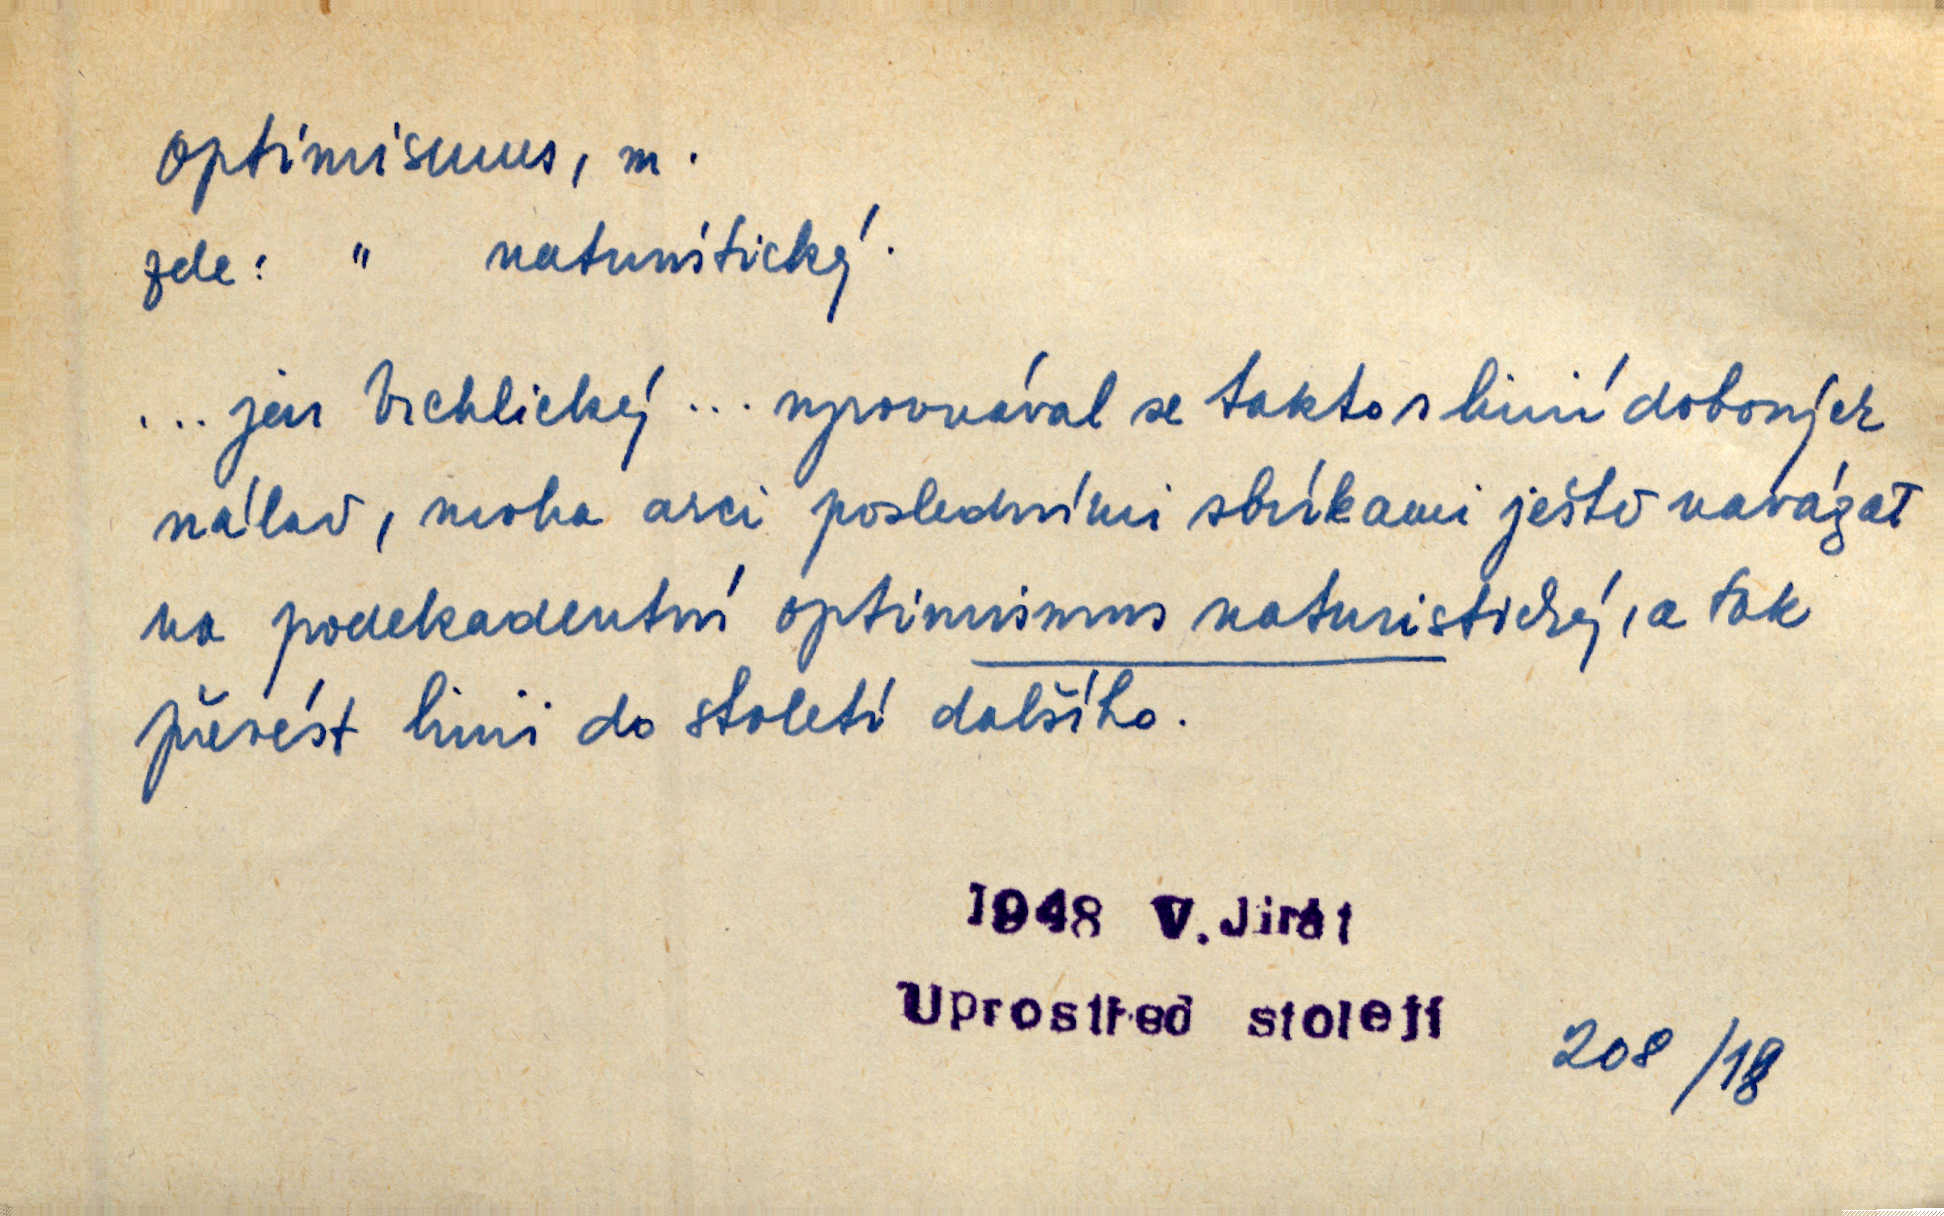 optimismus, m.
zde: " naturistický.
... jen Vrchlický ... vyrovnával se takto s linií dobových
nálad, moha arci posledními sbírkami ještě navázat
na podekadentní optimismus naturistický, a tak
převést linii do století dalšího.
1948 V. Jirát
Uprostřed století
208/18